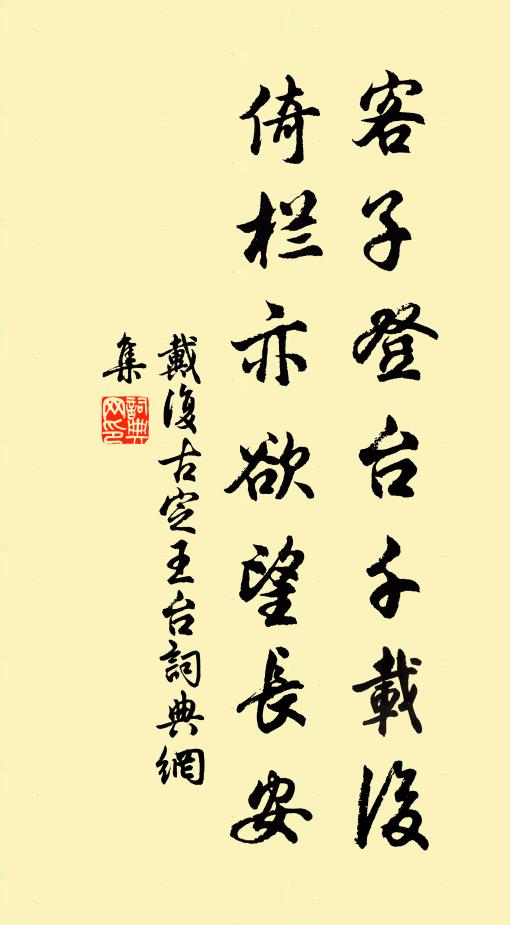 客子登台千載後
倚栏亦欲望長安
戴復古定王台詞典網
集
詞典
网印